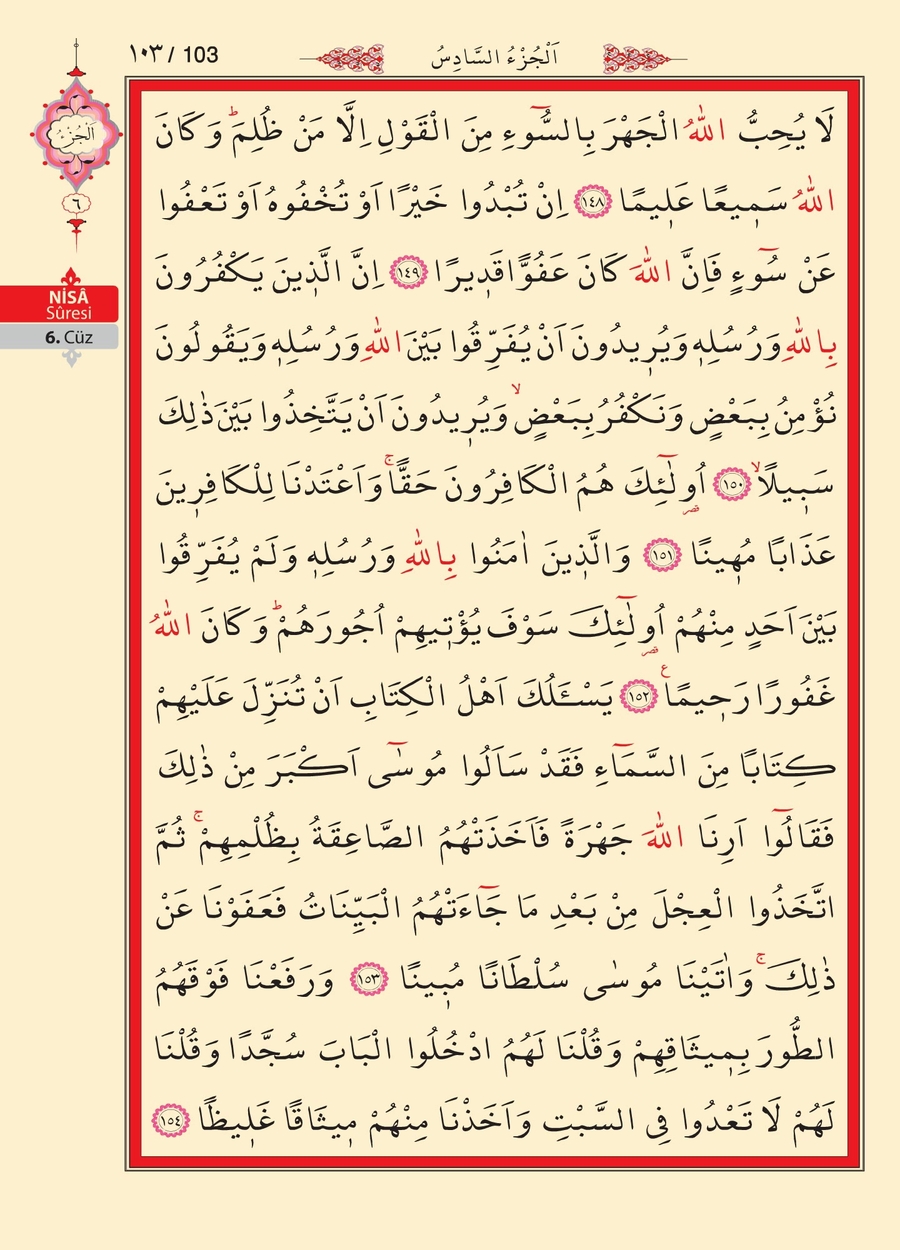 ١٠٣ / 103
اَلْجُزْءُ السَّادِسُ
اَلْجُزْءُ
٦
NİSÂ
Sûresi
6. Cüz
لَا يُحِبُّ اللّٰهُ الْجَهْرَ بِالسُّٓوءِ مِنَ الْقَوْلِ اِلَّا مَنْ ظُلِمَۜ وَكَانَ
اللّٰهُ سَمٖيعًا عَلٖيمًا ﴿١٤٨﴾ اِنْ تُبْدُوا خَيْرًا اَوْ تُخْفُوهُ اَوْ تَعْفُوا
عَنْ سُٓوءٍ فَاِنَّ اللّٰهَ كَانَ عَفُوًّا قَدٖيرًا ﴿١٤٩﴾ اِنَّ الَّذٖينَ يَكْفُرُونَ
بِاللّٰهِ وَرُسُلِهٖ وَيُرٖيدُونَ اَنْ يُفَرِّقُوا بَيْنَ اللّٰهِ وَرُسُلِهٖ وَيَقُولُونَ
نُؤْمِنُ بِبَعْضٍ وَنَكْفُرُ بِبَعْضٍۙ وَيُرٖيدُونَ اَنْ يَتَّخِذُوا بَيْنَ ذٰلِكَ
سَبٖيلًاۙ ﴿١٥٠﴾ اُو۬لٰٓئِكَ هُمُ الْكَافِرُونَ حَقًّاۚ وَاَعْتَدْنَا لِلْكَافِرٖينَ
عَذَابًا مُهٖينًا ﴿١٥١﴾ وَالَّذٖينَ اٰمَنُوا بِاللّٰهِ وَرُسُلِهٖ وَلَمْ يُفَرِّقُوا
بَيْنَ اَحَدٍ مِنْهُمْ اُو۬لٰٓئِكَ سَوْفَ يُؤْتٖيهِمْ اُجُورَهُمْۜ وَكَانَ اللّٰهُ
غَفُورًا رَحٖيمًاࣖ ﴿١٥٢﴾ يَسْـَٔلُكَ اَهْلُ الْكِتَابِ اَنْ تُنَزِّلَ عَلَيْهِمْ
كِتَابًا مِنَ السَّمَٓاءِ فَقَدْ سَاَلُوا مُوسٰٓى اَكْبَرَ مِنْ ذٰلِكَ
فَقَالُٓوا اَرِنَا اللّٰهَ جَهْرَةً فَاَخَذَتْهُمُ الصَّاعِقَةُ بِظُلْمِهِمْۚ ثُمَّ
اتَّخَذُوا الْعِجْلَ مِنْ بَعْدِ مَا جَٓاءَتْهُمُ الْبَيِّنَاتُ فَعَفَوْنَا عَنْ
ذٰلِكَۚ وَاٰتَيْنَا مُوسٰى سُلْطَانًا مُبٖينًا ﴿١٥٣﴾ وَرَفَعْنَا فَوْقَهُمُ
الطُّورَ بِمٖيثَاقِهِمْ وَقُلْنَا لَهُمُ ادْخُلُوا الْبَابَ سُجَّدًا وَقُلْنَا
لَهُمْ لَا تَعْدُوا فِى السَّبْتِ وَاَخَذْنَا مِنْهُمْ مٖيثَاقًا غَلٖيظًا ﴿١٥٤﴾